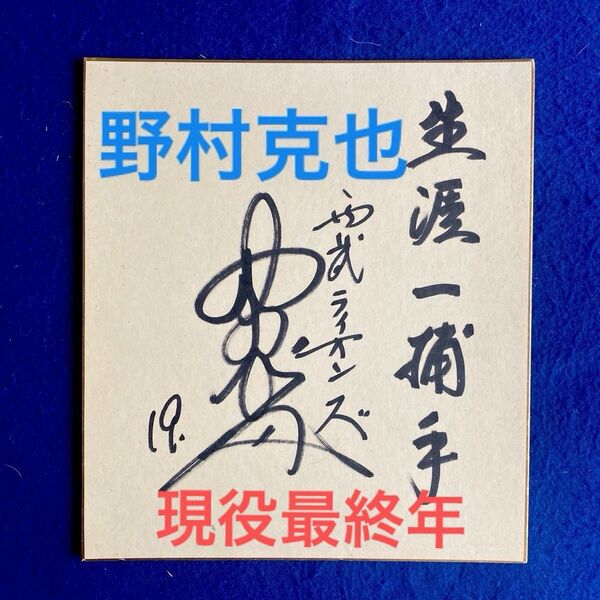 野村克也
生涯一捕手
西武ライオンズ
19.
現役最終年